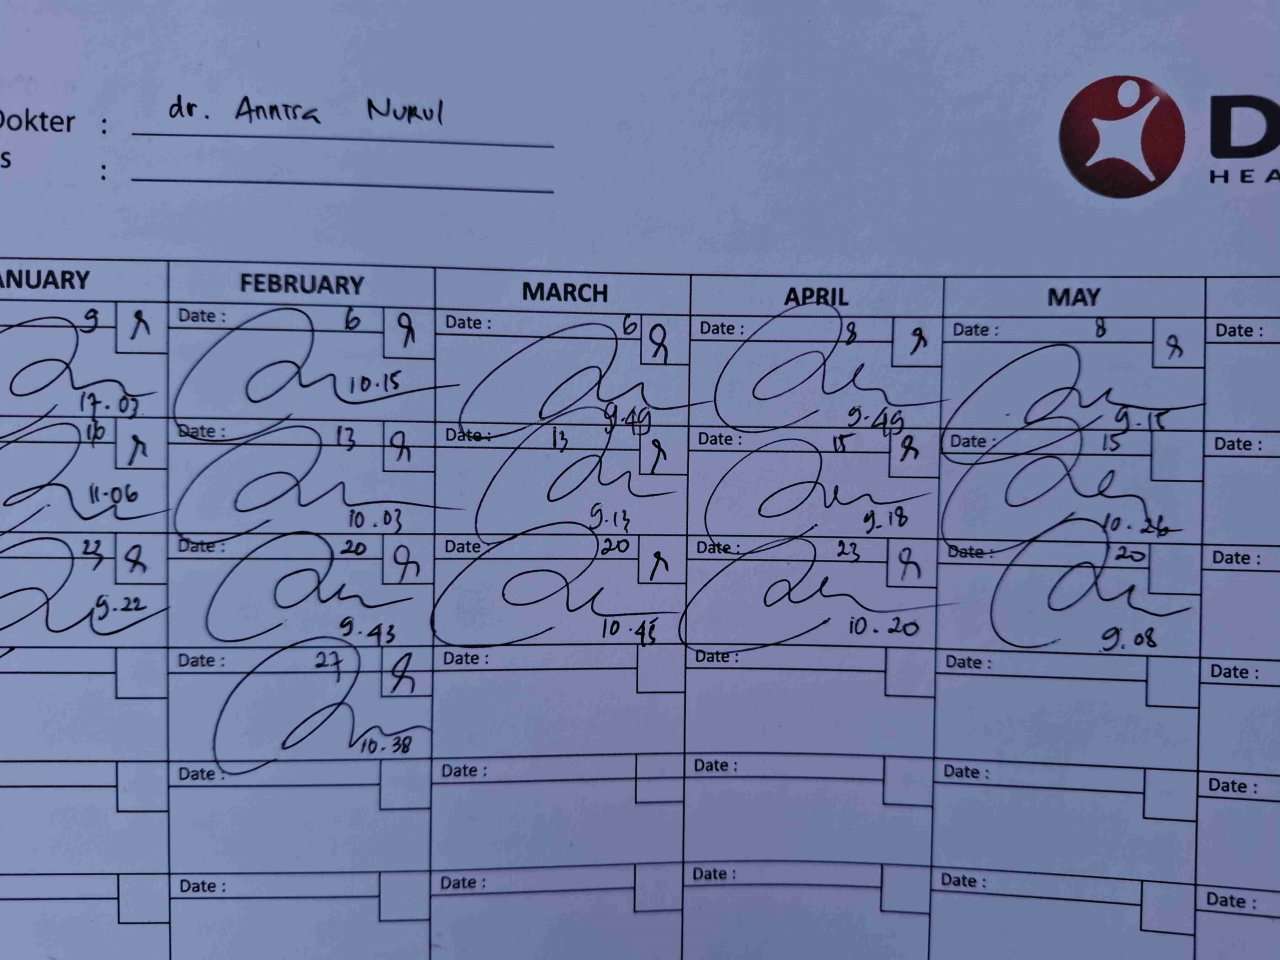 Dokter : dr. Annisa Nurul
s :
D
HEA
ANUARY FEBRUARY MARCH APRIL MAY
9 Date : 6 Date : 6 Date : 8 Date : 8 Date :
17.03 10.15 9.49 9.49 9.15
16 Date : 13 Date : 13 Date : 15 Date : 15 Date :
11.06 10.03 9.13 9.18 10.26
23 Date : 20 Date : 20 Date : 23 Date : 20 Date :
9.22 9.43 10.45 10.20 9.08
Date : 27 Date : Date : Date : Date :
10.38
Date : Date : Date : Date : Date :
Date : Date : Date : Date : Date :